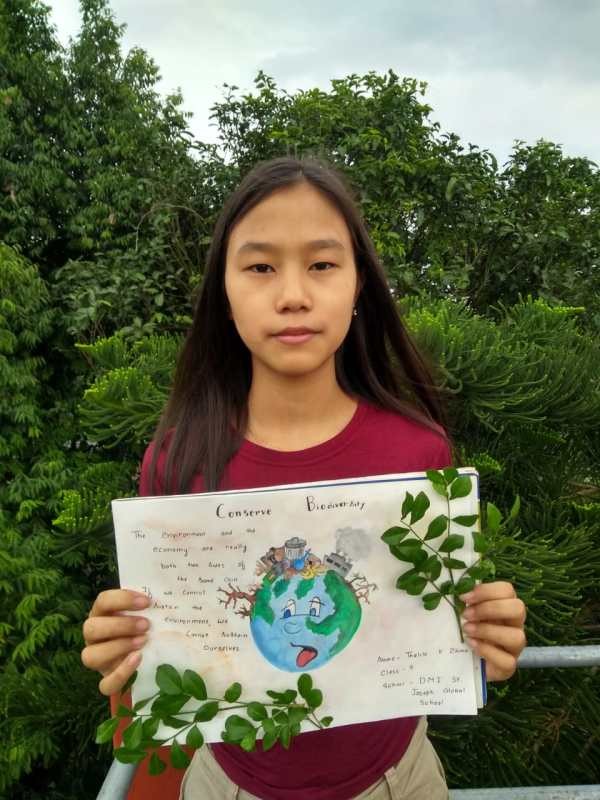 Conserve Biodiversity
The environment and the
economy are really
both two sides of
the same coin
If we cannot
Sustain the
environment, we
Cannot Sustain
Ourselves.
Name -
Class - 9
School - DMI St
Joseph Global
School